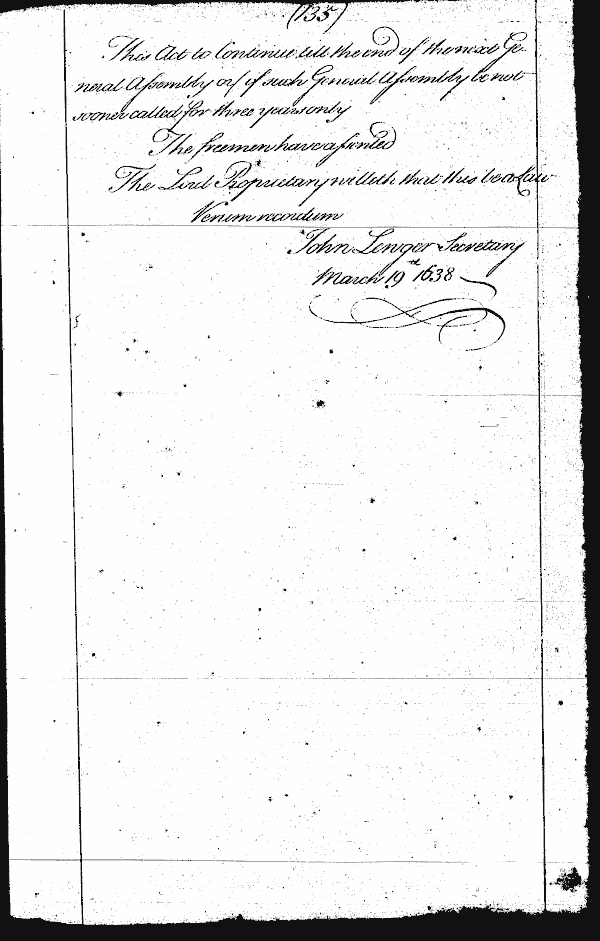 (135)
This Act to Continue till the end of the next Ge-
neral Assembly or if such General Assembly be not
sooner called for three years only
The freemen have assented
The Lord Proprietary willeth that this be a Law
Verum recordum
John Lewger Secretary
March 19th 1638